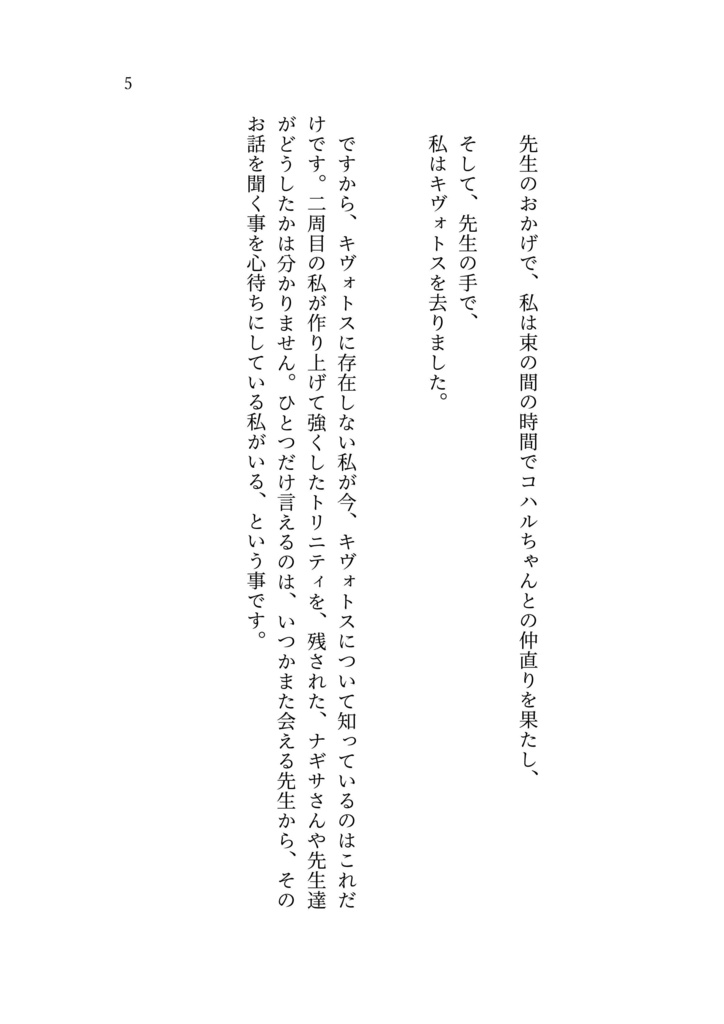 先生のおかげで、私は束の間の時間でコハルちゃんとの仲直りを果たし、
そして、先生の手で、
私はキヴォトスを去りました。
ですから、キヴォトスに存在しない私が今、キヴォトスについて知っているのはこれだ
けです。二周目の私が作り上げて強くしたトリニティを、残された、ナギサさんや先生達
がどうしたかは分かりません。ひとつだけ言えるのは、いつかまた会える先生から、その
お話を聞く事を心待ちにしている私がいる、という事です。
5